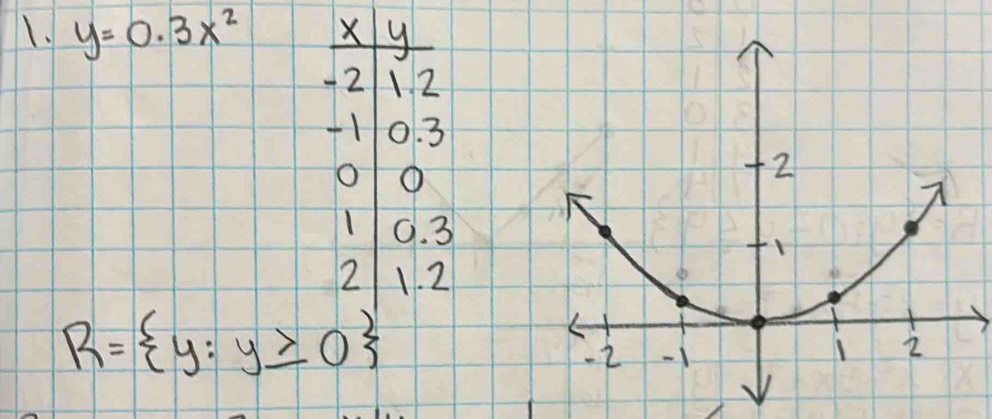 1. y=0.3x²
x y
-2 1.2
-1 0.3
0 0
1 0.3
2 1.2
R={y: y≥0}
2
1
-2 -1 1 2